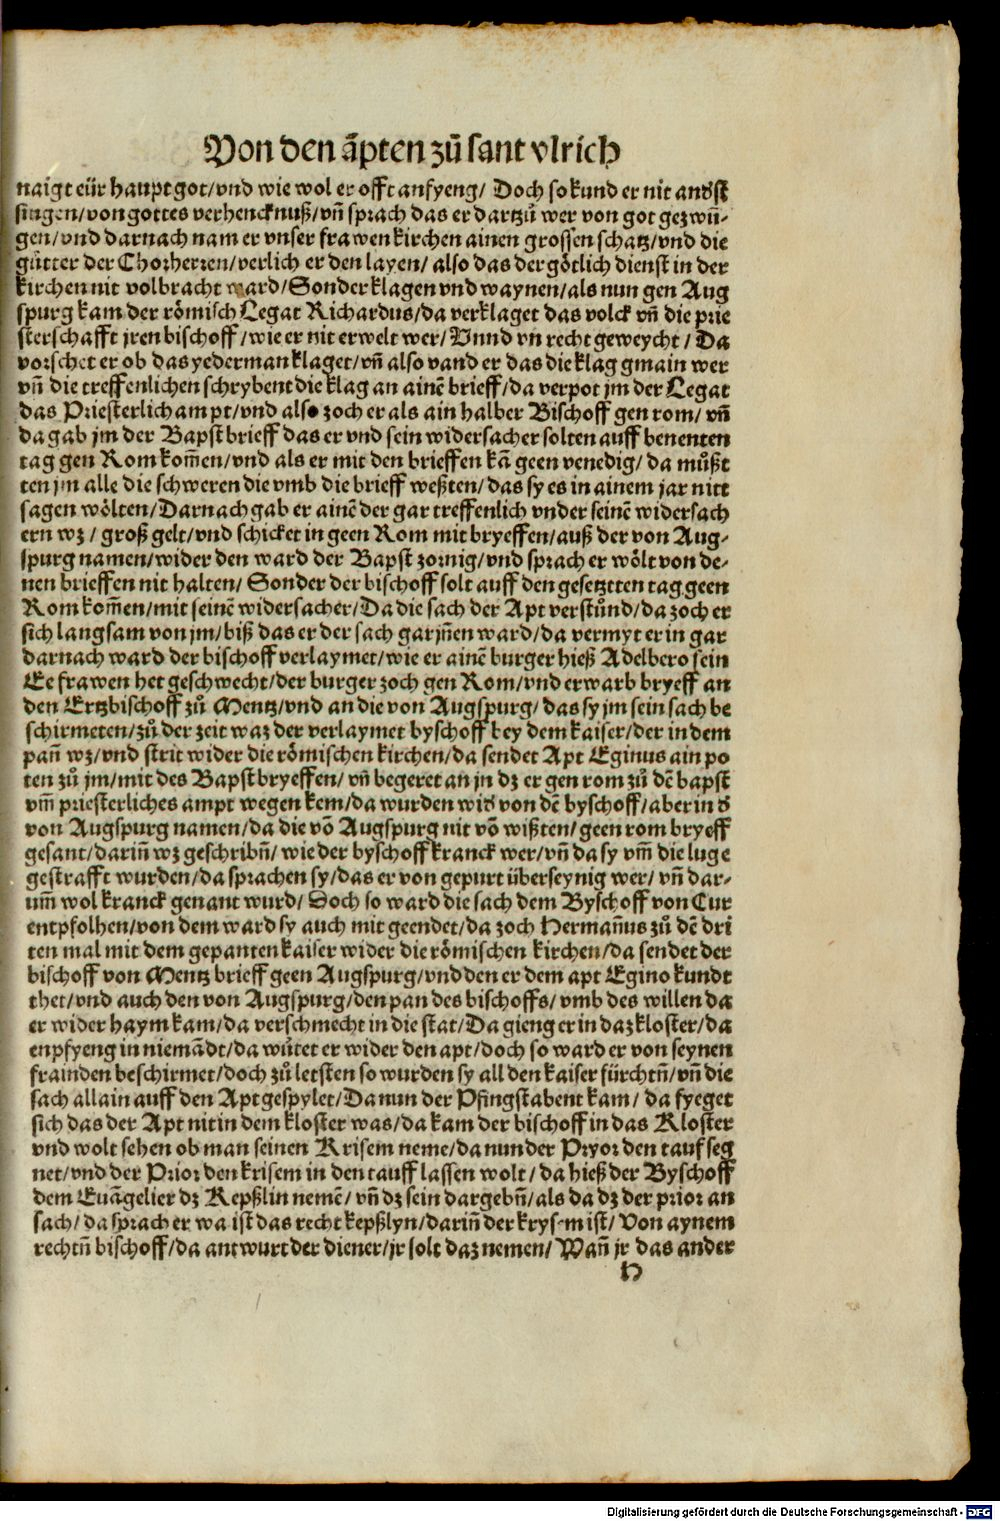 Von den āpten zů sant vlrich
naigt eür haupt got/vnd wie wol er offt anfyeng/ Doch so kund er nit andsst
singen/von gottes verhencknuß/vñ sprach das er dartzů wer von got gezwū-
gen/vnd darnach nam er vnser frawen kirchen ainen grossen schatz/vnd die
gütter der Chorherren/verlich er den layen/ also das der götlich dienst in der
kirchen nit volbracht ward/Sonder klagen vnd waynen/als nun gen Aug
spurg kam der römisch Legat Richardus/da verklaget das volck vñ die prie
sterschafft jren bischoff/wie er nit erwelt wer/Vnnd vn recht geweycht/ Da
vorschet er ob das yederman klaget/vñ also vand er das die klag gmain wer
vñ die treffenlichen schrybent die klag an ainē brieff/da verpot jm der Legat
das Priesterlich ampt/vnd also zoch er als ain halber Bischoff gen rom/ vñ
da gab jm der Bapst brieff das er vnd sein widersacher solten auff benenten
tag gen Rom kom̄en/vnd als er mit den brieffen kā geen venedig/ da můßt
ten jm alle die schweren die vmb die brieff weßten/das sy es in ainem jar nitt
sagen wölten/Darnach gab er ainē der gar treffenlich vnder seinē widersach
ern wz/ groß gelt/vnd schicket in geen Rom mit bryeffen/auß der von Aug-
spurg namen/wider den ward der Bapst zornig/vnd sprach er wölt von de-
nen brieffen nit halten/ Sonder der bischoff solt auff den gesetztten tag geen
Rom kom̄en/mit seinē widersacher/Da die sach der Apt verstůnd/da zoch er
sich langsam von jm/biß das er der sach gar jñen ward/da vermyt er in gar
darnach ward der bischoff verlaymet/wie er ainē burger hieß Adelbero sein
Ee frawen het geschwecht/der burger zoch gen Rom/vnd erwarb bryeff an
den Ertzbischoff zů Mentz/vnd an die von Augspurg/das sy jm sein sach be
schirmeten/zů der zeit waz der verlaymet byschoff bey dem kaiser/der in dem
pañ wz/vnd strit wider die römischen kirchen/da sendet Apt Eginus ain po
ten zů jm/mit des Bapst bryeffen/ vñ begeret an jn dz er gen rom zů dē bapst
vm̄ priesterliches ampt wegen kem/da wurden wid von dē byschoff/aber in d
von Augspurg namen/da die vō Augspurg nit vō wißten/geen rom bryeff
gesant/dariñ wz geschribñ/ wie der byschoff kranck wer/vñ da sy vm̄ die luge
gestrafft wurden/da sprachen sy/das er von gepurt überseynig wer/ vñ dar-
um̄ wol kranck genant wurd/ Doch so ward die sach dem Byschoff von Cur
entpfolhen/von dem ward sy auch mit geendet/da zoch Hermañus zů dē dri
ten mal mit dem gepanten kaiser wider die römischen kirchen/da sendet der
bischoff von Mentz brieff geen Augspurg/vnd den er dem apt Egino kundt
thet/vnd auch den von Augspurg/den pan des bischoffs/vmb des willen da
er wider haym kam/da verschmecht in die stat/Da gieng er in daz kloster/da
enpfyeng in niemādt/da wütet er wider den apt/doch so ward er von seynen
frainden beschirmet/doch zů letsten so wurden sy all den kaiser fürchtñ/vñ die
sach allain auff den Apt gespylet/Da nun der Pfingstabent kam/ da fyeget
sich das der Apt nit in dem kloster was/da kam der bischoff in das Kloster
vnd wolt sehen ob man seinen Krisem neme/da nun der Pryor den tauf seg
net/vnd der Prior den krisem in den tauff lassen wolt/ da hieß der Byschoff
dem Euāgelier dz Kepßlin nemē/ vñ dz sein dargebñ/als da dz der prior an
sach/da sprach er wa ist das recht kepßlyn/dariñ der krysm ist/ Von aynem
rechtñ bischoff/da antwurt der diener/jr solt daz nemen/ Wañ jr das ander
H
Digitalisierung gefördert durch die Deutsche Forschungsgemeinschaft - DFG